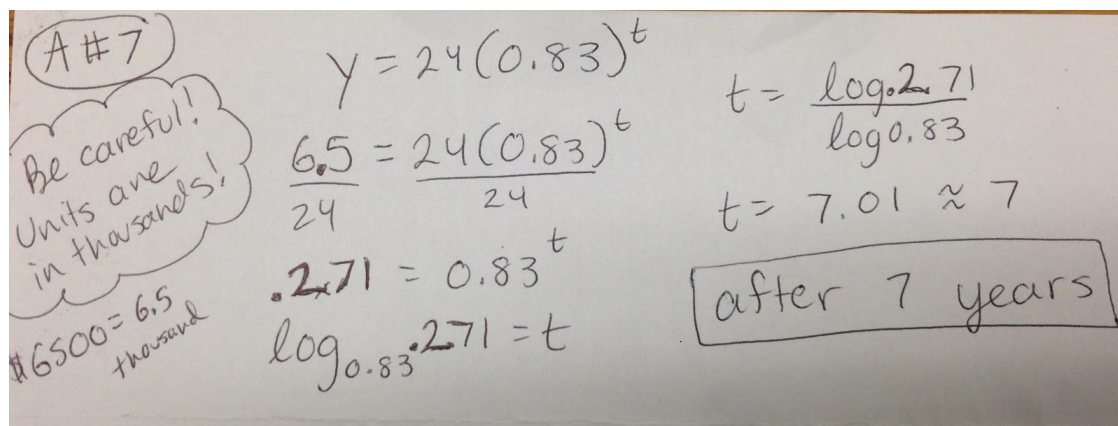 A #7
Be careful!
Units are
in thousands!
$6500 = 6.5
thousand
y = 24(0.83)^t
6.5/24 = 24(0.83)^t/24
.271 = 0.83^t
log_0.83 .271 = t
t = log .271/log 0.83
t = 7.01 ≈ 7
after 7 years